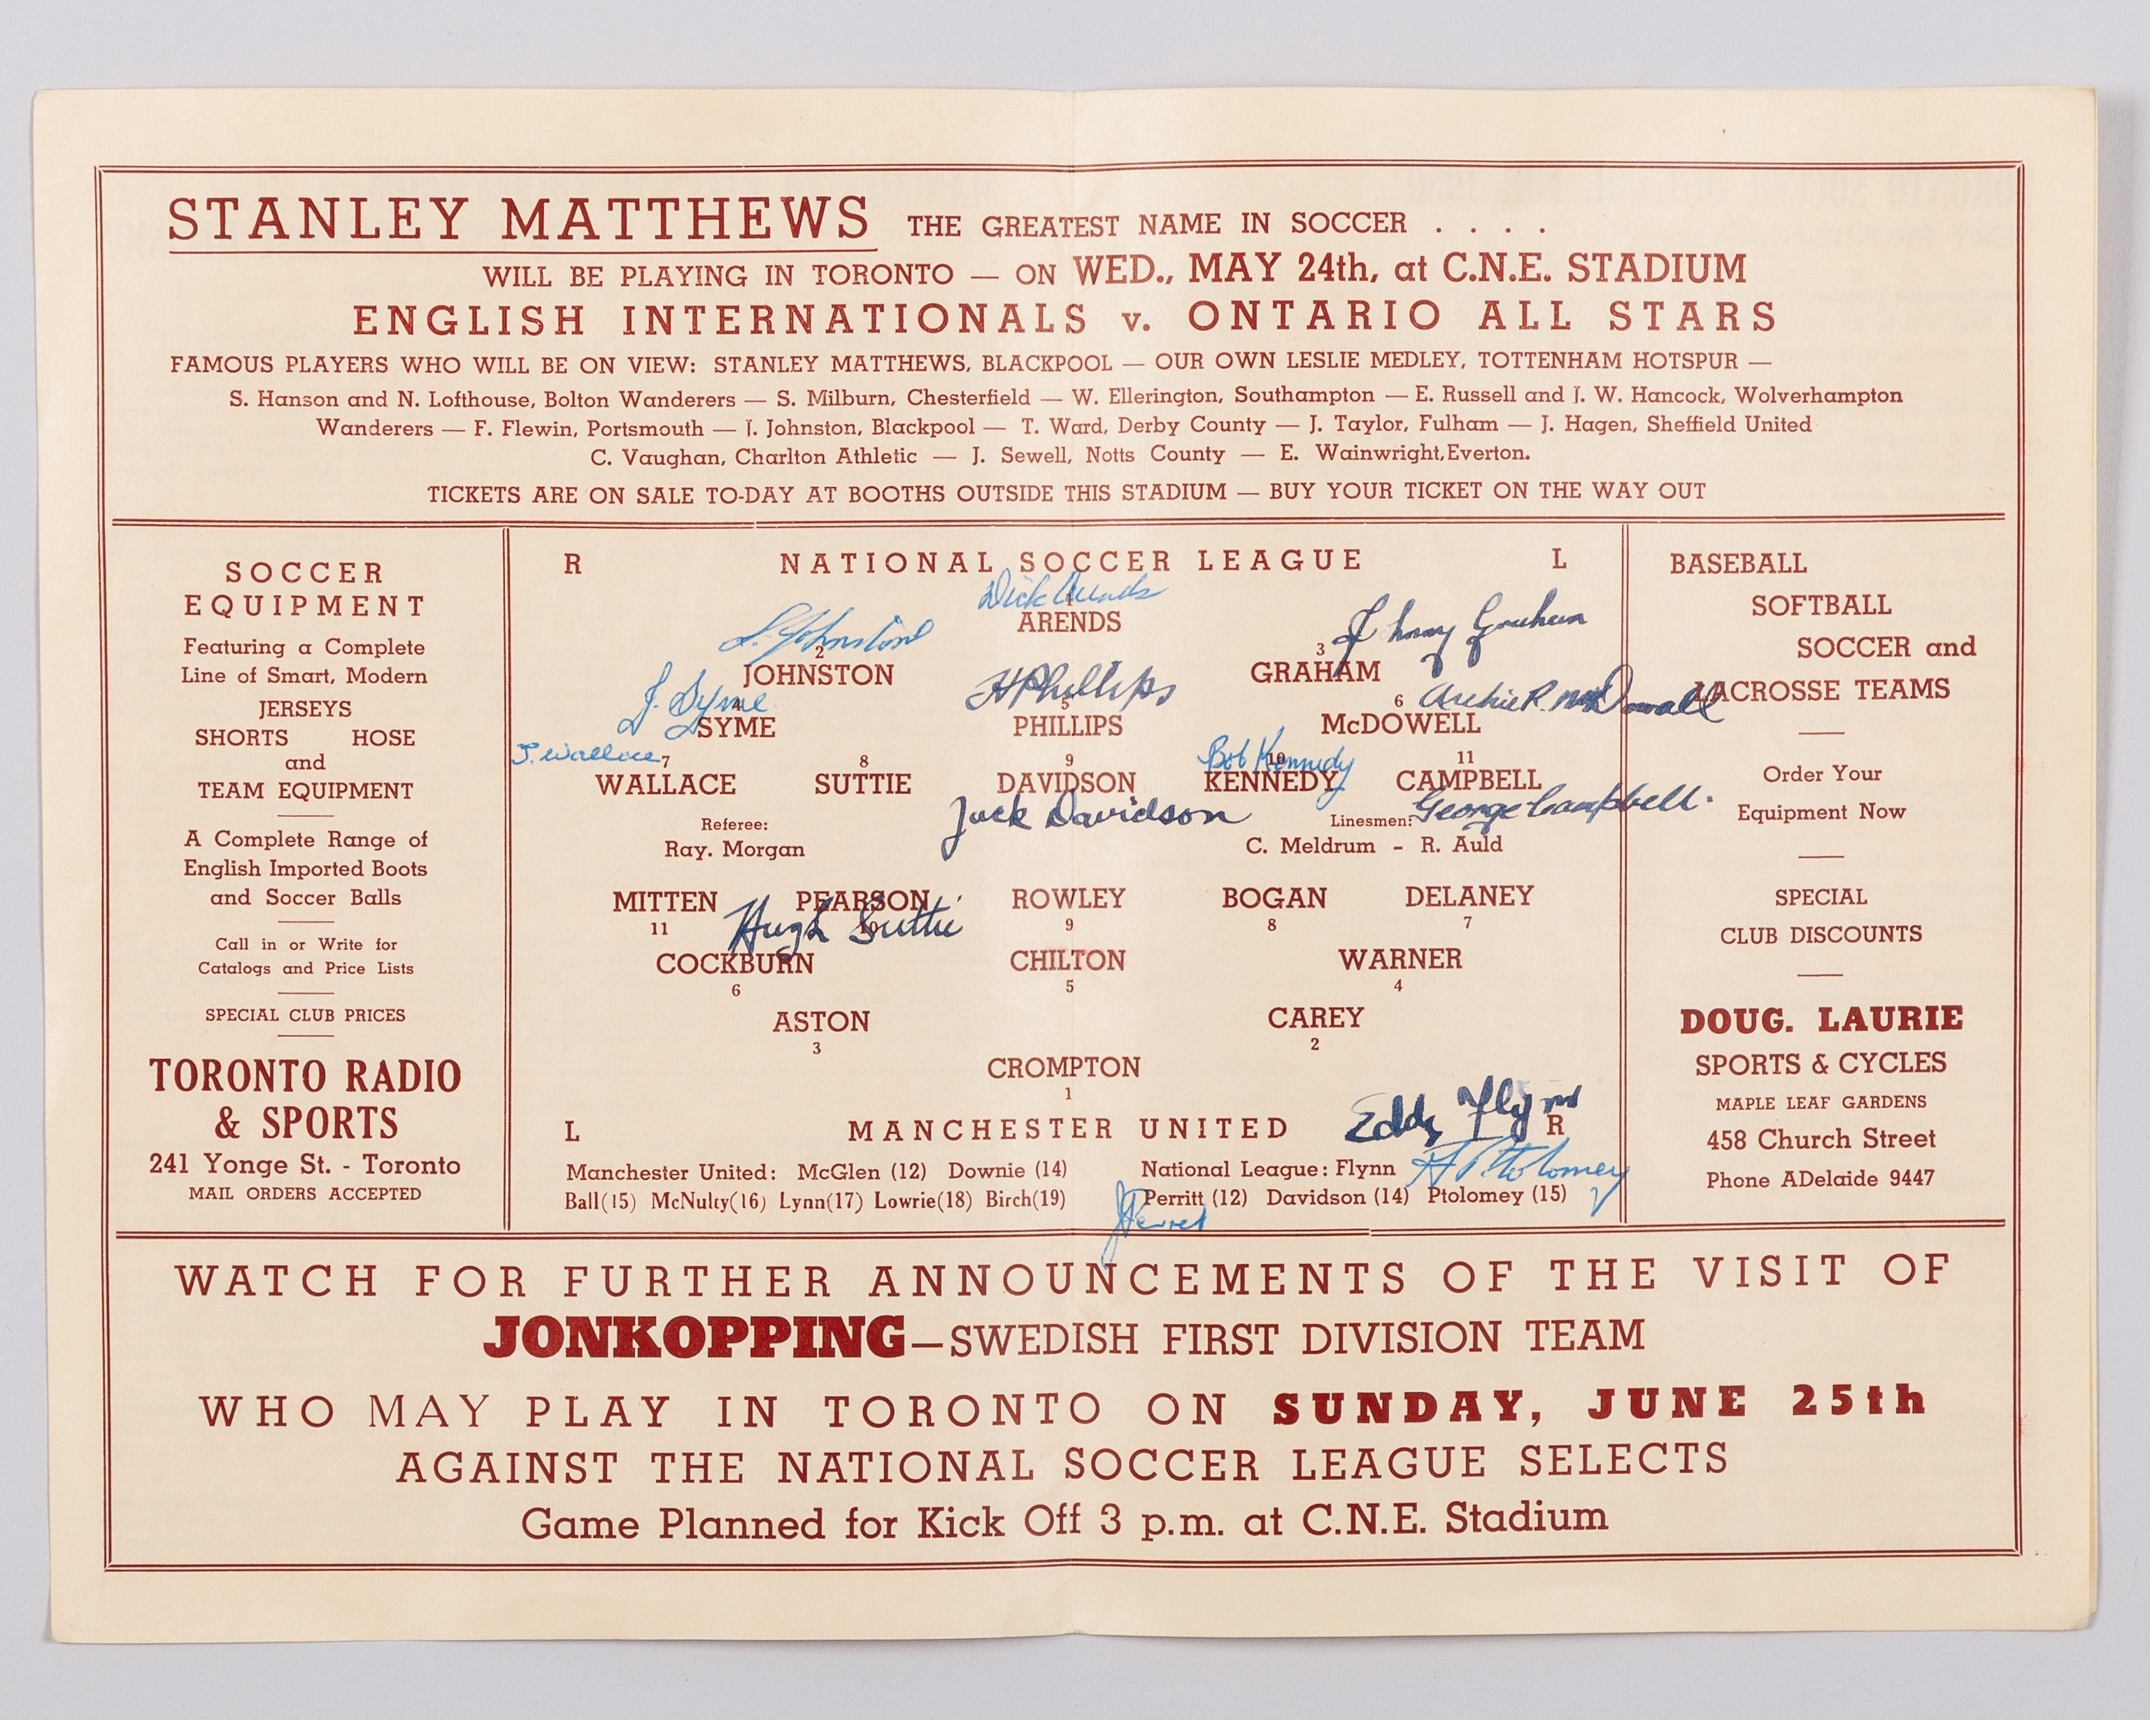 STANLEY MATTHEWS THE GREATEST NAME IN SOCCER . . . .
WILL BE PLAYING IN TORONTO — ON WED., MAY 24th, at C.N.E. STADIUM
ENGLISH INTERNATIONALS v. ONTARIO ALL STARS
FAMOUS PLAYERS WHO WILL BE ON VIEW: STANLEY MATTHEWS, BLACKPOOL — OUR OWN LESLIE MEDLEY, TOTTENHAM HOTSPUR —
S. Hanson and N. Lofthouse, Bolton Wanderers — S. Milburn, Chesterfield — W. Ellerington, Southampton — E. Russell and J. W. Hancock, Wolverhampton
Wanderers — F. Flewin, Portsmouth — I. Johnston, Blackpool — T. Ward, Derby County — J. Taylor, Fulham — J. Hagen, Sheffield United
C. Vaughan, Charlton Athletic — J. Sewell, Notts County — E. Wainwright, Everton.
TICKETS ARE ON SALE TO-DAY AT BOOTHS OUTSIDE THIS STADIUM — BUY YOUR TICKET ON THE WAY OUT
SOCCER
EQUIPMENT
Featuring a Complete
Line of Smart, Modern
JERSEYS
SHORTS HOSE
and
TEAM EQUIPMENT
A Complete Range of
English Imported Boots
and Soccer Balls
Call in or Write for
Catalogs and Price Lists
SPECIAL CLUB PRICES
TORONTO RADIO
& SPORTS
241 Yonge St. - Toronto
MAIL ORDERS ACCEPTED
R NATIONAL SOCCER LEAGUE L
Dick Arends
1
ARENDS
L. Johnston Johnny Graham
2 3
JOHNSTON GRAHAM
J. Syme H Phillips Archie R. McDowall
4 5 6
SYME PHILLIPS McDOWELL
J. Wallace Bob Kennedy
7 8 9 10 11
WALLACE SUTTIE DAVIDSON KENNEDY CAMPBELL
Jack Davidson George Campbell.
Referee: Linesmen:
Ray. Morgan C. Meldrum - R. Auld
MITTEN PEARSON ROWLEY BOGAN DELANEY
Hugh Suttie
11 10 9 8 7
COCKBURN CHILTON WARNER
6 5 4
ASTON CAREY
3 2
CROMPTON
1
Eddy Flynn
L MANCHESTER UNITED R
Manchester United: McGlen (12) Downie (14)
Ball(15) McNulty(16) Lynn(17) Lowrie(18) Birch(19)
National League: Flynn
H Ptolomey
Perritt (12) Davidson (14) Ptolomey (15)
BASEBALL
SOFTBALL
SOCCER and
LACROSSE TEAMS
Order Your
Equipment Now
SPECIAL
CLUB DISCOUNTS
DOUG. LAURIE
SPORTS & CYCLES
MAPLE LEAF GARDENS
458 Church Street
Phone ADelaide 9447
WATCH FOR FURTHER ANNOUNCEMENTS OF THE VISIT OF
JONKOPPING—SWEDISH FIRST DIVISION TEAM
WHO MAY PLAY IN TORONTO ON SUNDAY, JUNE 25th
AGAINST THE NATIONAL SOCCER LEAGUE SELECTS
Game Planned for Kick Off 3 p.m. at C.N.E. Stadium